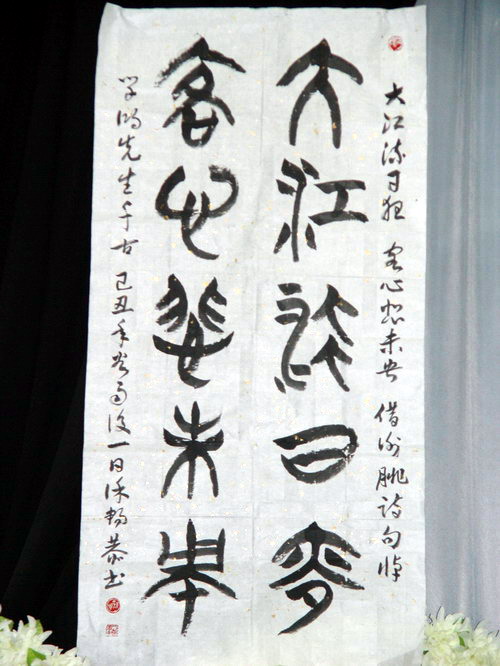 大江流日夜 客心悲未央 借谢朓诗句悼
大江流日夜
客心悲未央
学先生千古 己丑年谷雨后一日徐畅恭书